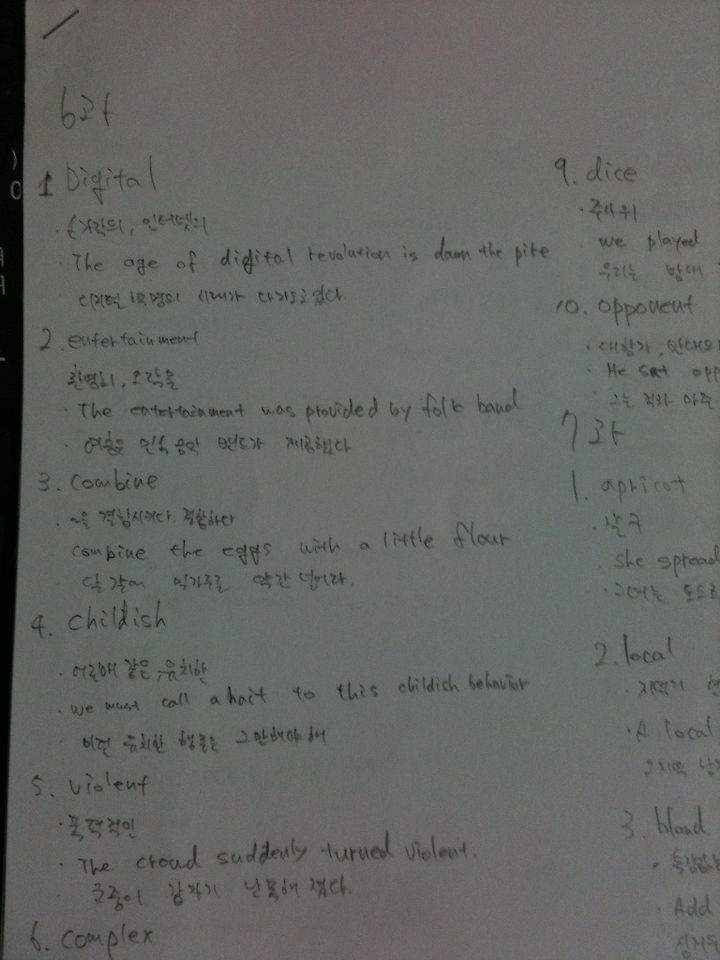 6과
1 Digital
손가락의, 인터넷의
The age of digital revolution is down the pike
디지털 혁명의 시대가 다가오고있다.
2. entertainment
환영회, 오락물
The entertainment was provided by folk band
여흥은 민속 음악 밴드가 제공했다
3. combine
~을 결합시키다. 결합하다
combine the eggs with a little flour
달걀에 밀가루를 약간 넣어라.
4. childish
어린애 같은 유치한
we must call a halt to this childish behavior
이런 유치한 행동은 그만해야 해
5. violent
폭력적인
The croud suddenly turned violent.
군중이 갑자기 난폭해 졌다.
6. complex
9. dice
주사위
we played
우리는 밤새
10. opponent
He set opp
그는 적와 아주
7과
1. apricot
살구
she spread
그녀는 토스트
2. local
지역의 현
A local
그지역 남
3. bland
Add